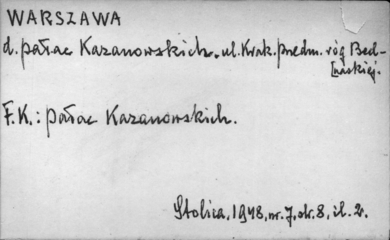 WARSZAWA
d. pałac Kazanowskich, ul. Krak. przedm. róg Bed-
[narskiej.
F.K.: pałac Kazanowskich.
Stolica, 1948, nr. 7, str. 8, il. 2.